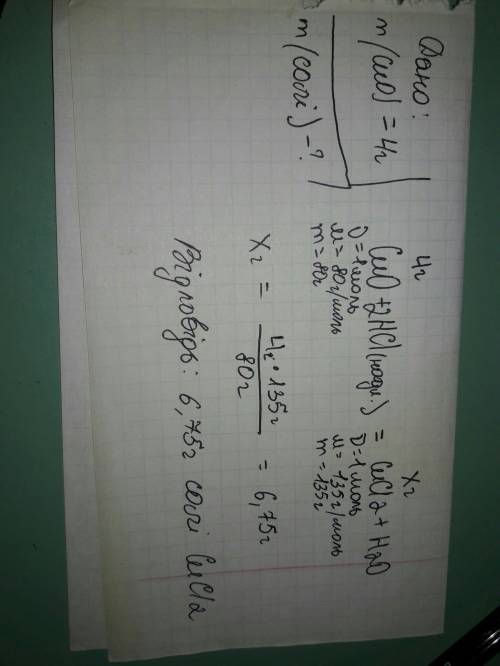 Дано:
m(CuO) = 4г
m(солі) - ?
4г Xг
CuO + 2HCl(надл.) = CuCl2 + H2O
υ = 1моль υ = 1моль
M = 80г/моль M = 135г/моль
m = 80г m = 135г
Xг = 4г · 135г / 80г = 6,75г
Відповідь: 6,75г солі CuCl2